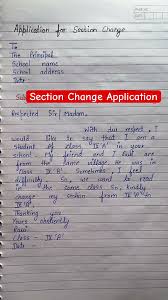 Application for Section Change
To
The Principal
School name
School address
Date -
Section Change Application
Respected Sir/Madam,
With due respect, I
would like to say that I am a
student of class IX 'A' in your
school. My friend and I live are
from the same village. He was in
class IX 'B'. Sometimes, I feel
difficulty. So, we want to read
in the same class. So, kindly
change my section from IX 'A' to
IX 'B'.
Thanking you
Yours obediently
Ravi
Class - IX 'A'
Date -